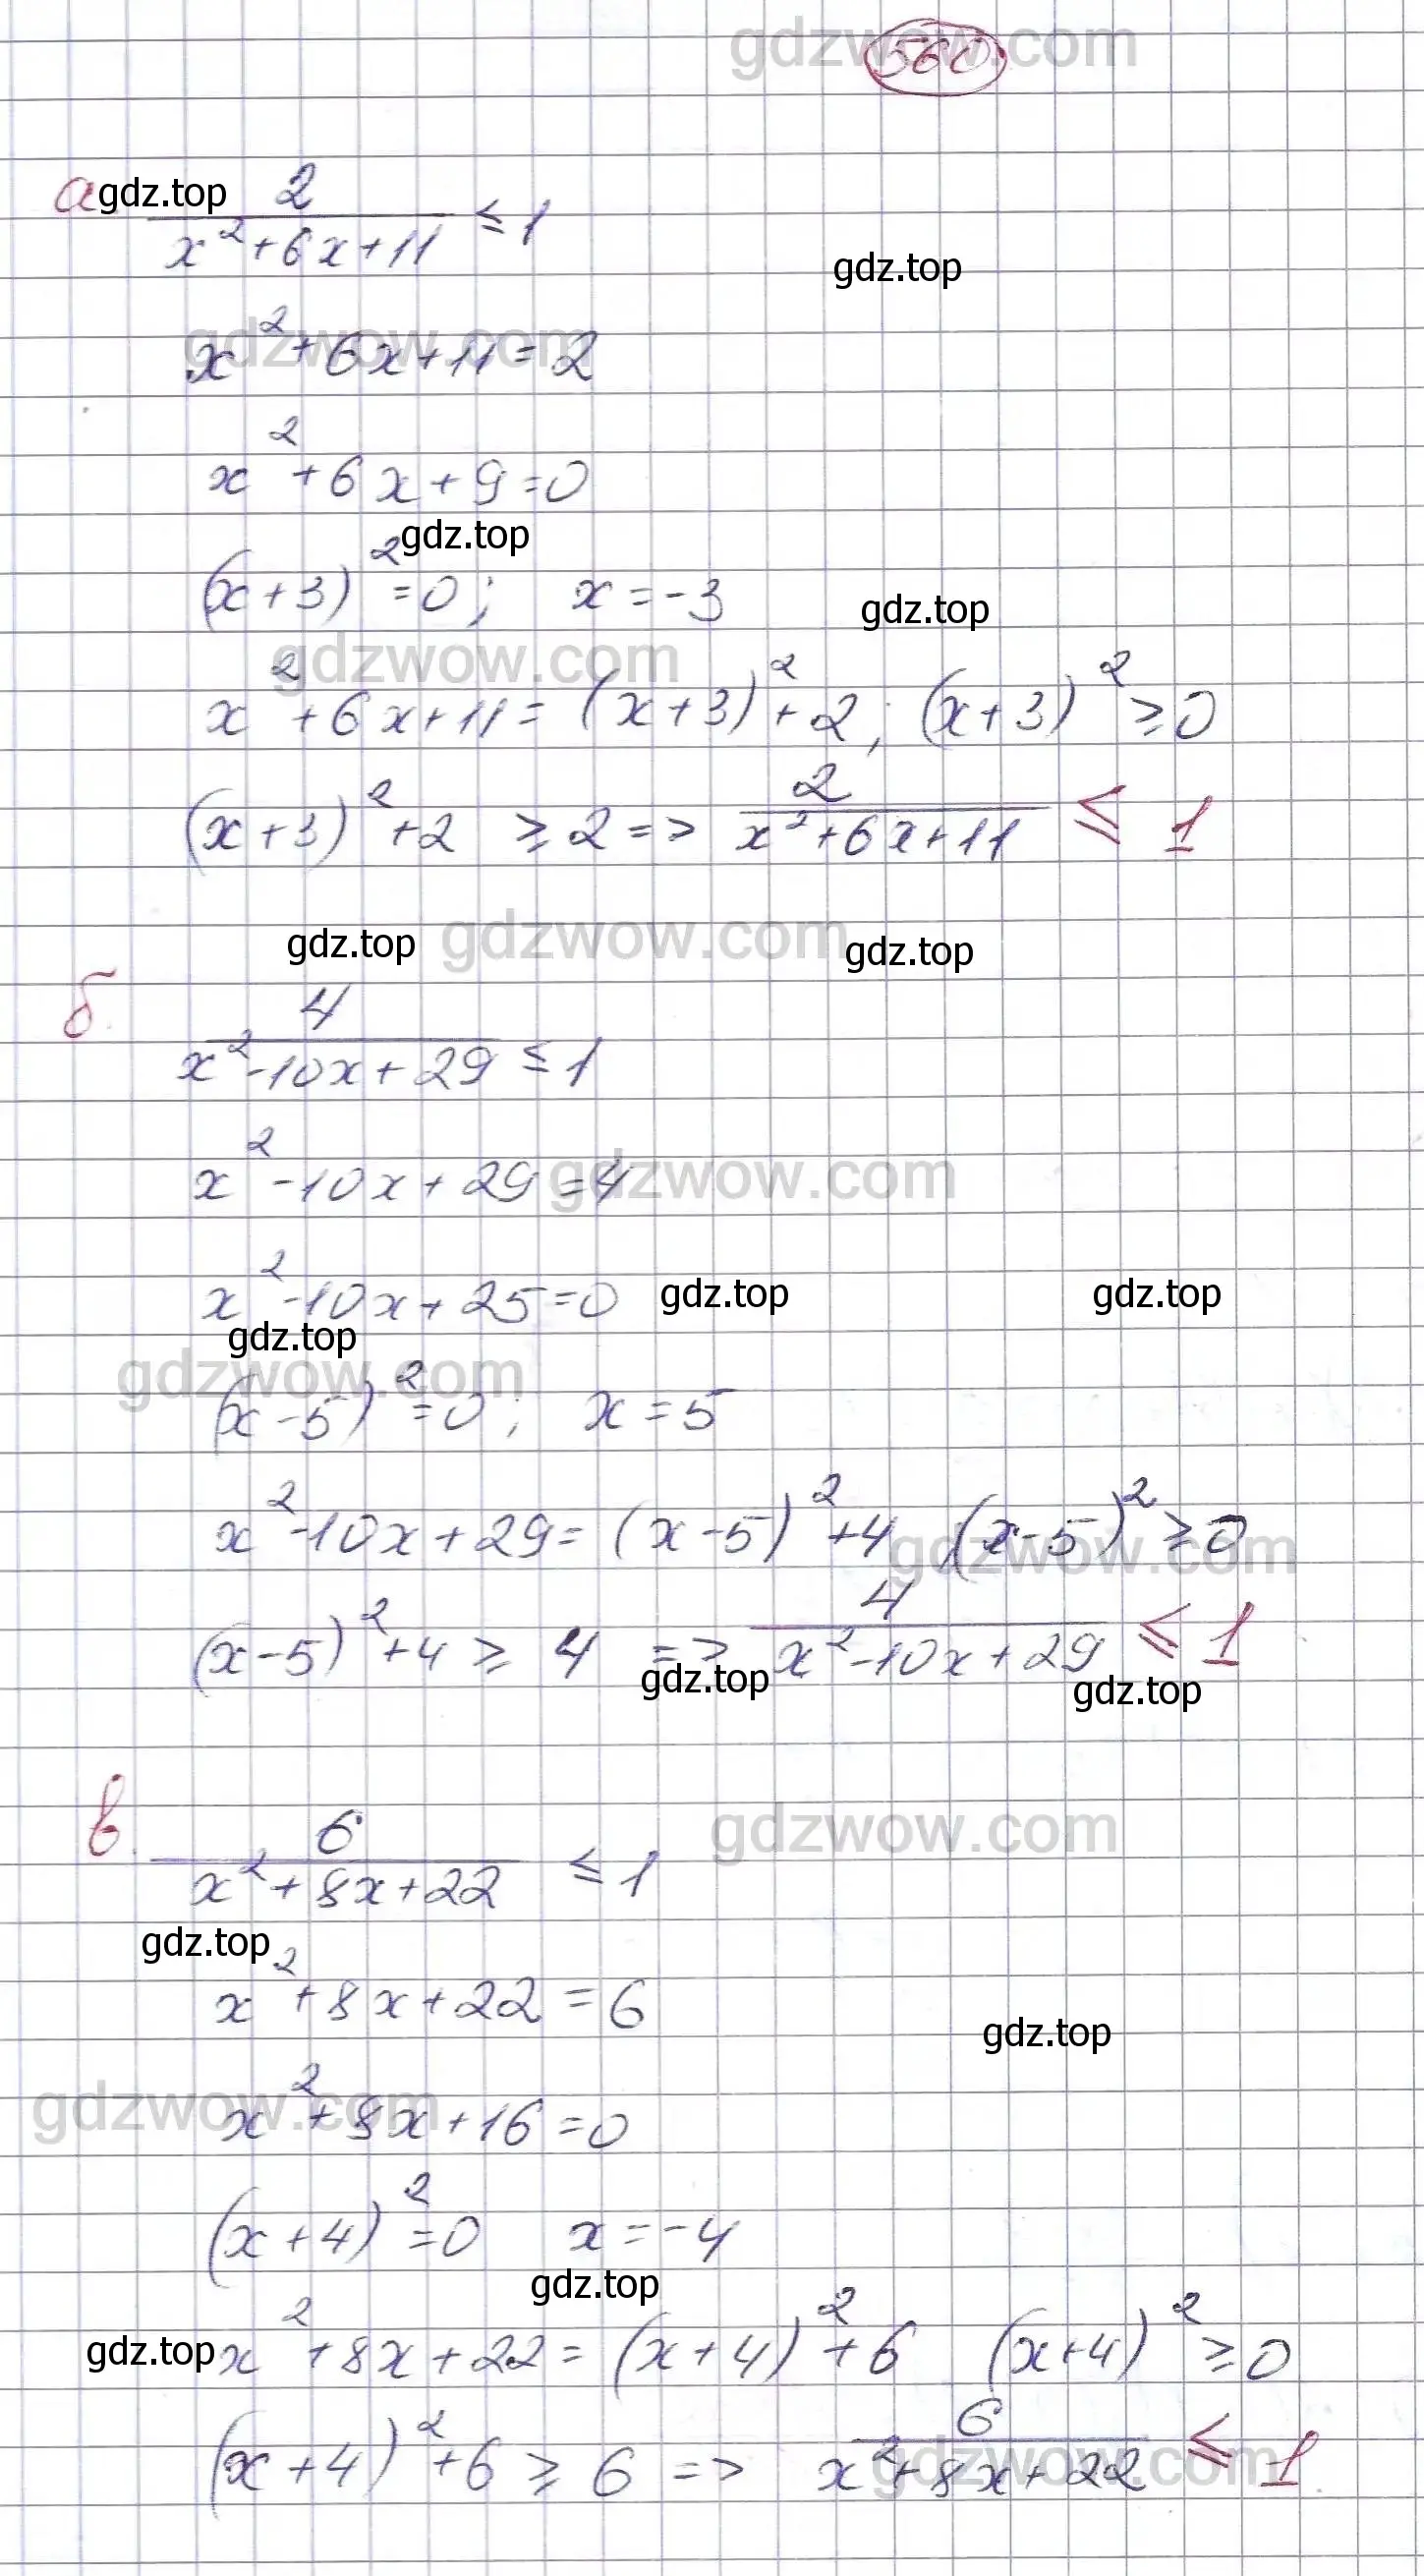 gdzwow.com
560
а. gdz.top 2
x²+6x+11 ≤ 1
gdz.top
gdzwow.com
x²+6x+11=2
x²+6x+9=0
gdz.top
(x+3)²=0; x=-3
gdz.top
gdzwow.com
x²+6x+11=(x+3)²+2; (x+3)²≥0
(x+3)²+2 ≥2=> 2/(x²+6x+11) ≤ 1
gdz.top gdzwow.com gdz.top
б. 4
x²-10x+29 ≤ 1
x²-10x+29=4
gdzwow.com
x²-10x+25=0 gdz.top gdz.top
gdz.top
gdzwow.com
(x-5)²=0; x=5
x²-10x+29=(x-5)²+4 (x-5)²≥0
gdzwow.com
(x-5)²+4≥ 4 => 4/(x²-10x+29) ≤ 1
gdz.top gdz.top
gdzwow.com
в. 6
x²+8x+22 ≤ 1
gdz.top
x²+8x+22=6
gdz.top
gdzwow.com
x²+8x+16=0
(x+4)²=0 x=-4
gdz.top
gdz.top x²+8x+22=(x+4)²+6 (x+4)²≥0
(x+4)²+6≥6=> 6/(x²+8x+22) ≤ 1
gdzwow.com